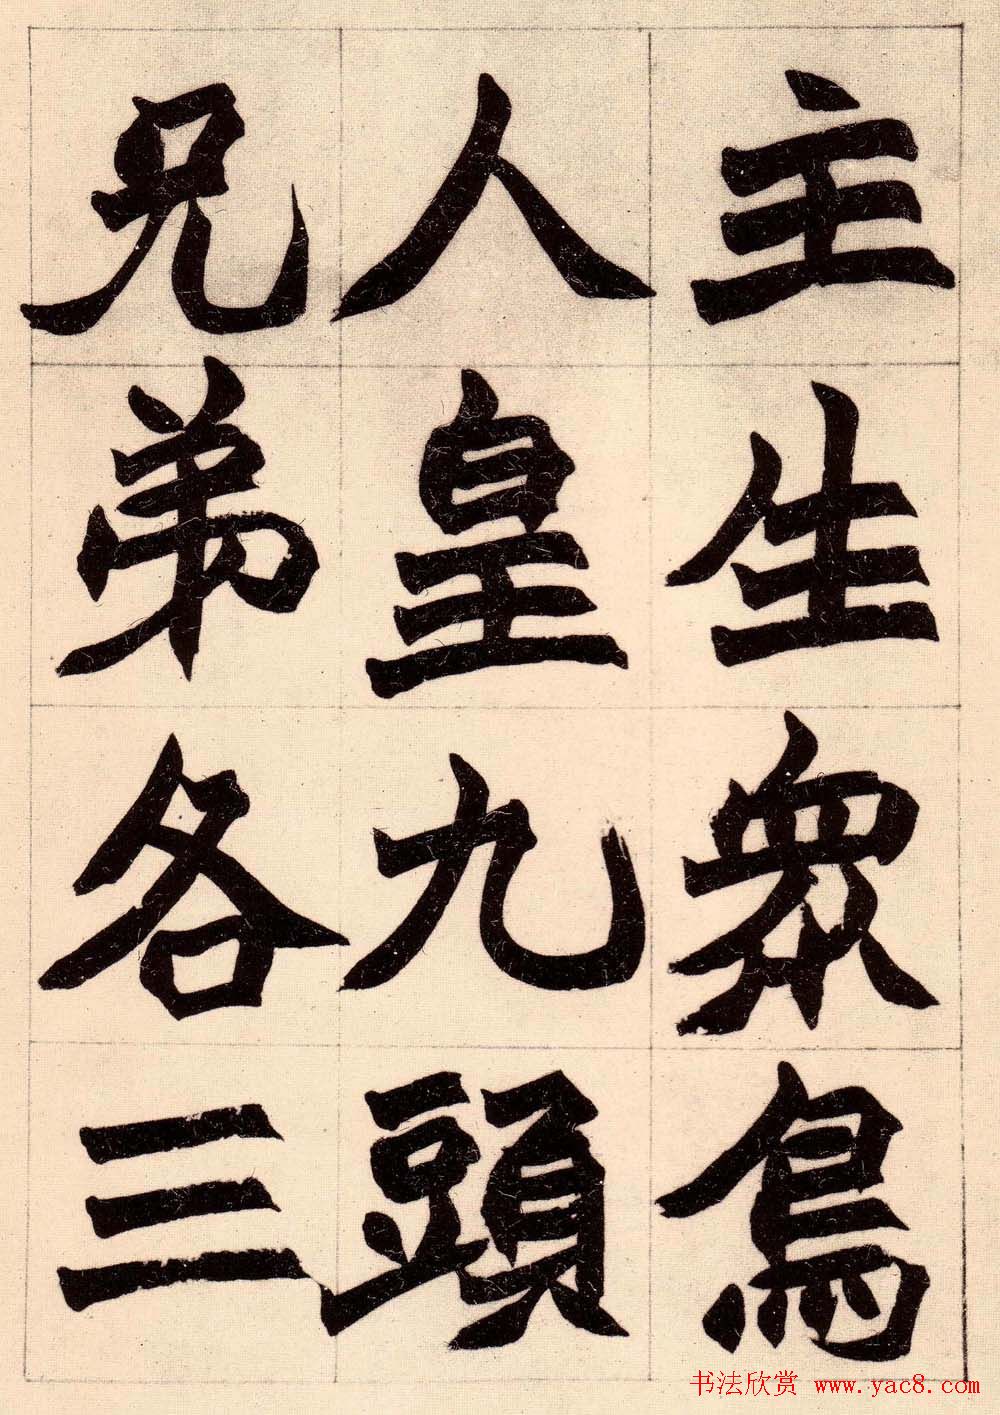 主生眾鳥
人皇九頭
兄弟各三
书法欣赏 www.yac8.com